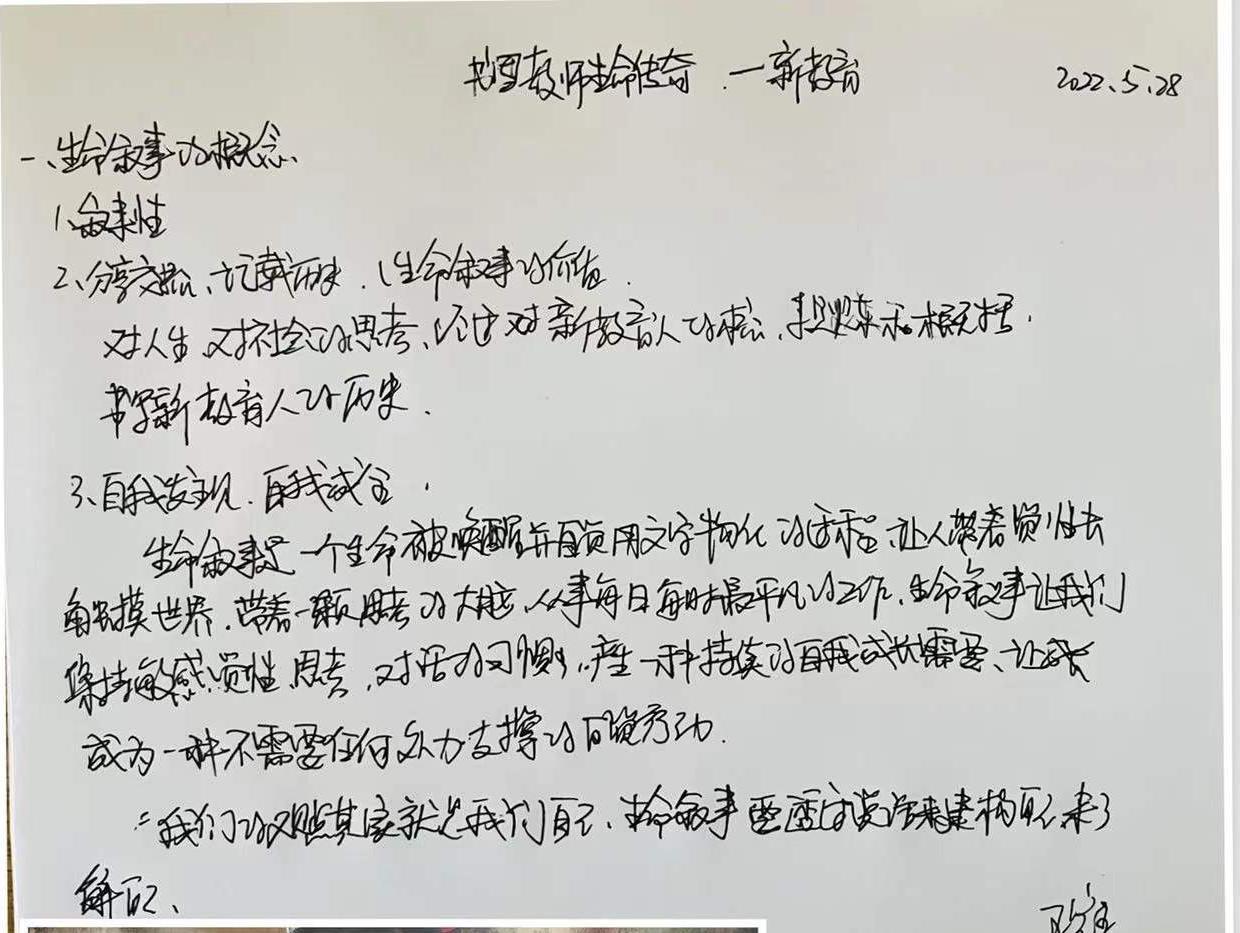 书写教师生命传奇.一新教育 2022.5.28
一、生命叙事的概念、
1、叙事性
2、分享交流、记载历史.(生命叙事的价值.
对人生、对社会的思考、经过对新教育人的、提炼和概括.
书写新教育人的历史.
3、自我发现.自我成全.
生命叙事是一个生命被唤醒并自觉用文字物化的过程.让人带着觉性去
触摸世界.带着一颗思考的大脑、从事每日每时最平凡的工作.生命叙事让我们
保持敏感、觉性、思考、对话的习惯,产生一种持续的自我成长需要、让成长
成为一种不需要任何外力支撑的自觉行动.
二我们的观照其实就是我们自己、生命叙事要通过说话来建构自己、来了
解自己、